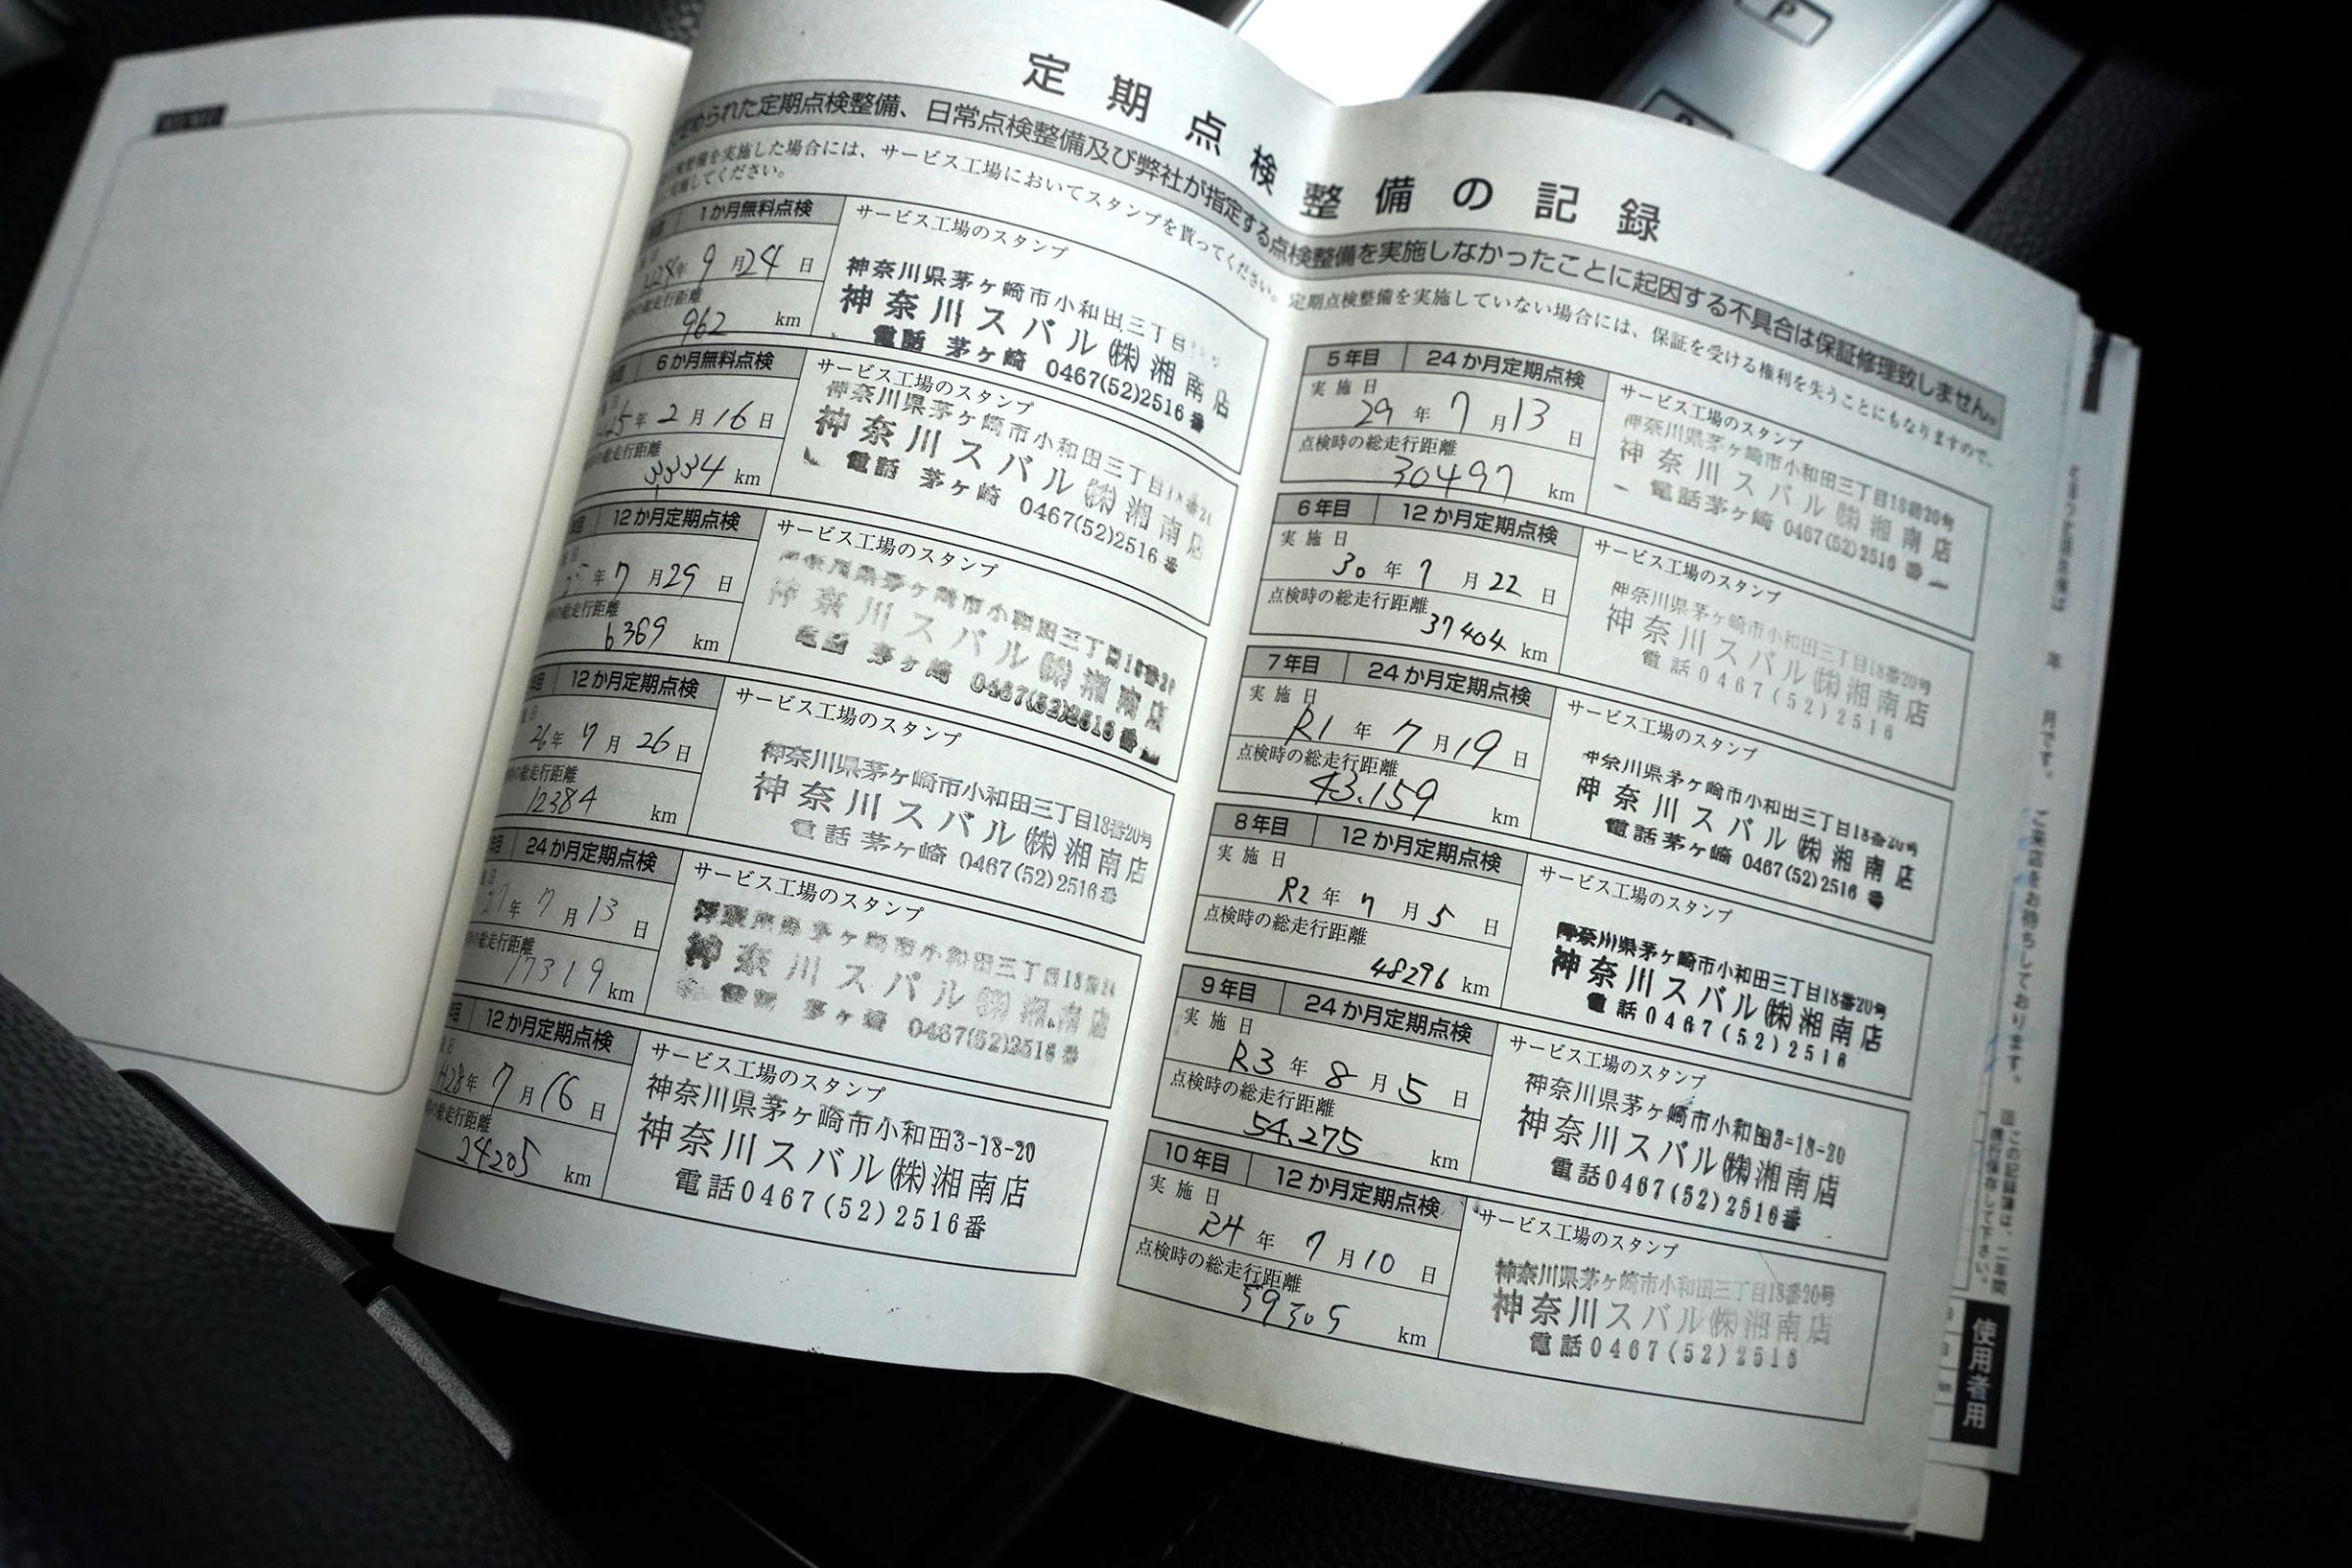 定期点検整備の記録
られた定期点検整備、日常点検整備及び弊社が指定する点検整備を実施しなかったことに起因する不具合は保証修理致しません。
整備を実施した場合には、サービス工場においてスタンプを貰ってください。定期点検整備を実施していない場合には、保証を受ける権利を失うことにもなりますので、
実施してください。
1か月無料点検
サービス工場のスタンプ
年 9月24日
962 km
神奈川県茅ヶ崎市小和田三丁目
神奈川スバル㈱湘南店
電話 茅ヶ崎 0467(52)2516番
6か月無料点検
サービス工場のスタンプ
25年2月16日
の総走行距離
3,334 km
神奈川県茅ヶ崎市小和田三丁目18番2
神奈川スバル㈱湘南店
電話 茅ヶ崎 0467(52)2516番
12か月定期点検
サービス工場のスタンプ
年7月29日
の総走行距離
6369 km
神奈川県茅ヶ崎市小和田三丁目18番20
神奈川スバル㈱湘南店
電話 茅ヶ崎 0467(52)2516番
12か月定期点検
サービス工場のスタンプ
26年7月26日
の総走行距離
12384 km
神奈川県茅ヶ崎市小和田三丁目18番20号
神奈川スバル㈱湘南店
電話 茅ヶ崎 0467(52)2516番
24か月定期点検
サービス工場のスタンプ
27年7月13日
の総走行距離
17319 km
神奈川県茅ヶ崎市小和田三丁目18番
神奈川スバル㈱湘南店
電話 茅ヶ崎 0467(52)2516番
12か月定期点検
サービス工場のスタンプ
H28年7月16日
の総走行距離
24205 km
神奈川県茅ヶ崎市小和田3-18-20
神奈川スバル㈱湘南店
電話0467(52)2516番
5年目 24か月定期点検
サービス工場のスタンプ
実施日
29年7月13日
点検時の総走行距離
30497 km
神奈川県茅ヶ崎市小和田三丁目18番20号
神奈川スバル㈱湘南店
電話茅ヶ崎 0467(52)2516番
6年目 12か月定期点検
サービス工場のスタンプ
実施日
30年7月22日
点検時の総走行距離
37404 km
神奈川県茅ヶ崎市小和田三丁目18番20号
神奈川スバル㈱湘南店
電話0467(52)2516
7年目 24か月定期点検
サービス工場のスタンプ
実施日
R1年7月19日
点検時の総走行距離
43,159 km
神奈川県茅ヶ崎市小和田三丁目18番20号
神奈川スバル㈱湘南店
電話茅ヶ崎 0467(52)2516番
8年目 12か月定期点検
サービス工場のスタンプ
実施日
R2年7月5日
点検時の総走行距離
48296 km
神奈川県茅ヶ崎市小和田三丁目18番20号
神奈川スバル㈱湘南店
電話0467(52)2516
9年目 24か月定期点検
サービス工場のスタンプ
実施日
R3年8月5日
点検時の総走行距離
54,275 km
神奈川県茅ヶ崎市小和田3-18-20
神奈川スバル㈱湘南店
電話0467(52)2516番
10年目 12か月定期点検
サービス工場のスタンプ
実施日
R4年7月10日
点検時の総走行距離
59305 km
神奈川県茅ヶ崎市小和田三丁目18番20号
神奈川スバル㈱湘南店
電話0467(52)2516
年 月です。 ご来店をお待ちしております。
この記録簿は、二年間
携行保存して下さい。
使用者用
P